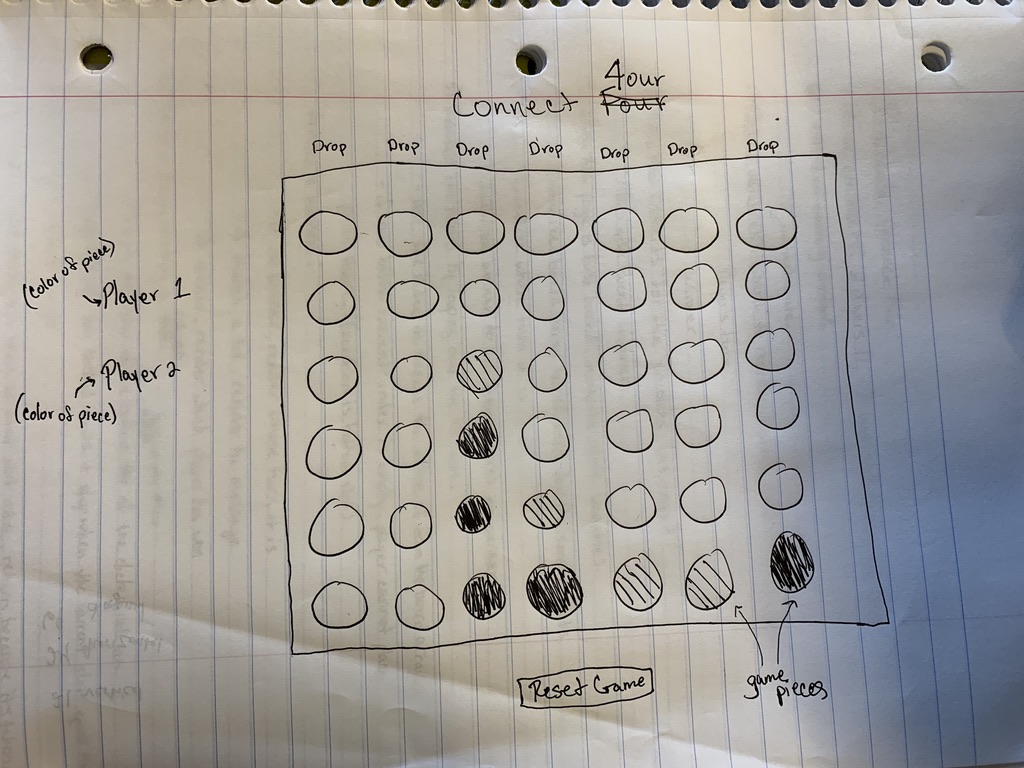 Connect 4our
Four
Drop Drop Drop Drop Drop Drop Drop
(color of piece)
Player 1
Player 2
(color of piece)
Reset Game
game
pieces